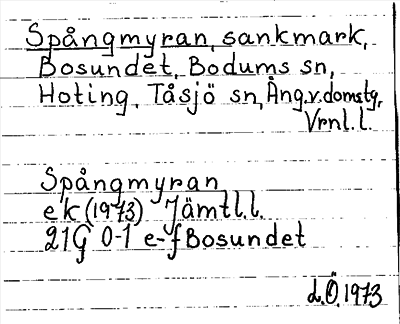 Spångmyran, sankmark,
Bosundet, Bodums sn,
Hoting, Tåsjö sn, Ång.v.domstg,
Vrnl.l.
Spångmyran
ek (1973) Jämtl.l.
21G 0-1 e-f Bosundet
d.Ö. 1973